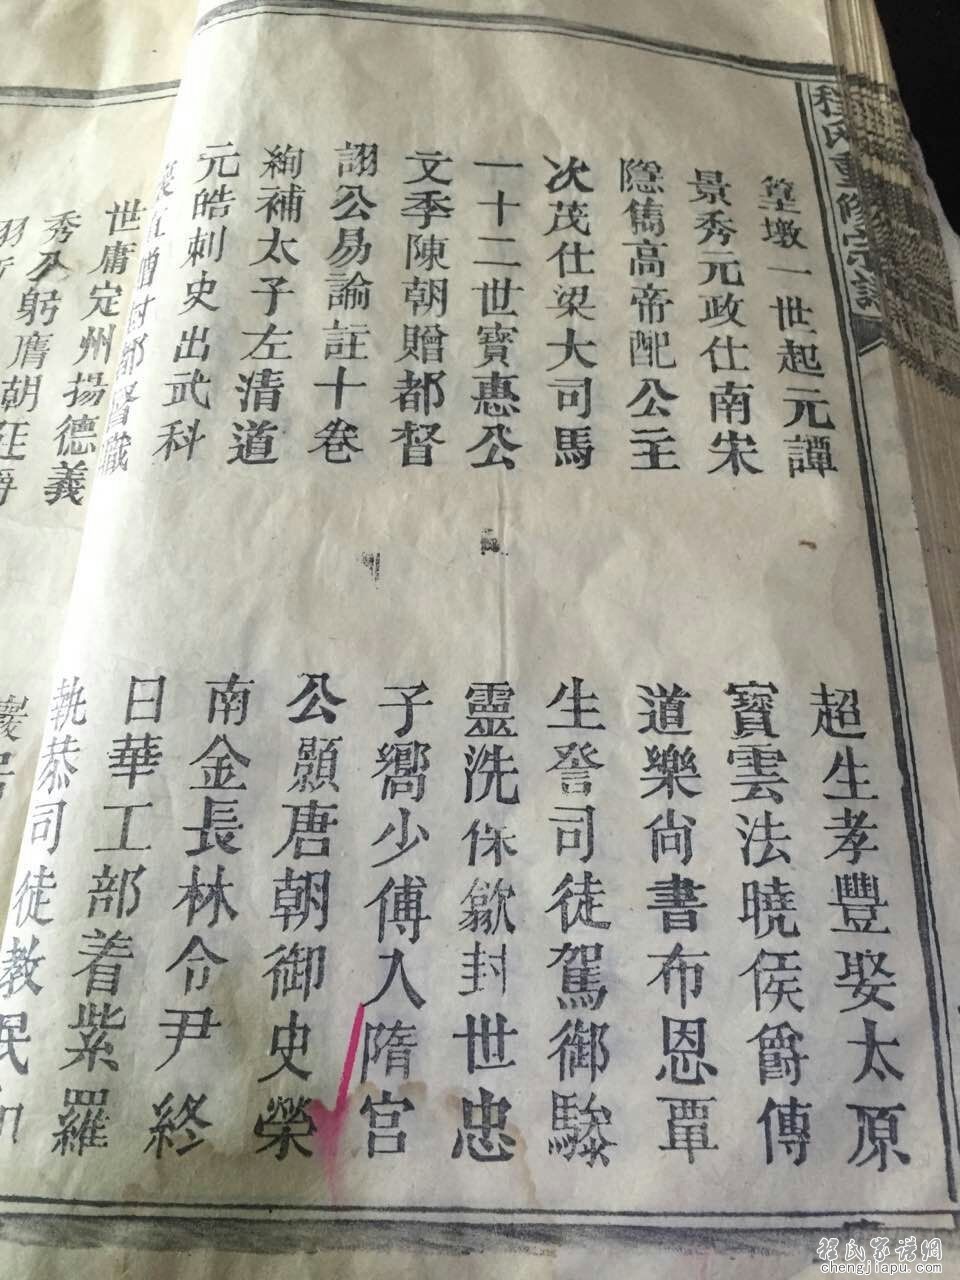 程氏重修宗譜
篁墩一世起元譚
超生孝豐娶太原
景秀元政仕南宋
寶雲法曉侯爵傳
隱儁高帝配公主
道樂尚書布恩覃
次茂仕梁大司馬
生詧司徒駕御驂
一十二世寶惠公
靈洗保歙封世忠
文季陳朝贈都督
子嚮少傅入隋宮
詡公易論註十卷
公顥唐朝御史榮
絢補太子左清道
南金長林令尹終
元皓刺史出武科
日華工部着紫羅
贈封都督職
執恭司徒教民和
世庸定州揚德義
秀公躬膺胡
程氏家谱網
chengjiapu.com